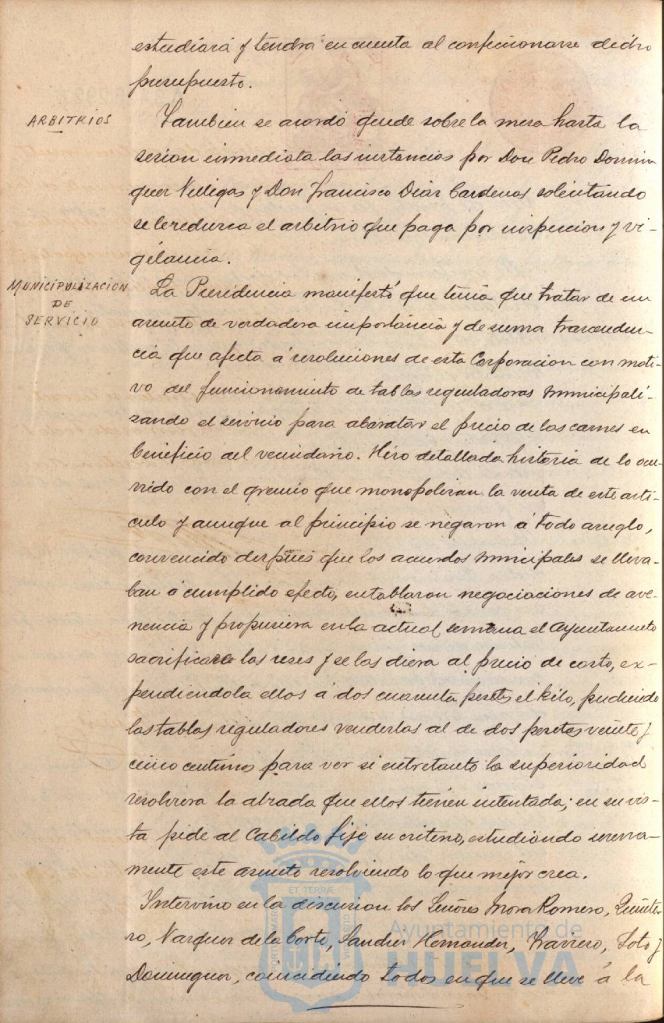 estudiará y tendrá en cuenta al confeccionarse dicho
presupuesto.
ARBITRIOS
Tambien se acordó quede sobre la mesa hasta la
sesion inmediata las instancias por Don Pedro Domin
guez Villegas y Don Francisco Diaz Cardenas solicitando
se le reduzca el arbitrio que paga por inspeccion y vi-
gilancia.
MUNICIPULIZACION
DE
SERVICIO
La Presidencia manifestó que tenia que tratar de un
asunto de verdadera importancia y de suma trascenden
cia que afecta á resoluciones de esta Corporacion con moti-
vo del funcionamiento de tablas reguladoras municipali-
zando el servicio para abaratar el precio de las carnes en
beneficio del vecindario. Hizo detallada historia de lo ocu-
rrido con el gremio que monopolizan la venta de este arti-
culo y aunque al principio se negaron á todo arreglo,
convencido despues que los acuerdos municipales se lleva-
ban á cumplido efecto, entablaron negociaciones de ave-
nencia y propusiera en la actual semana el Ayuntamiento
sacrificase las reses y se las diera al precio de costo, ex-
pendiendola ellos á dos cuarenta pesetas el kilo, pudiendo
las tablas reguladores venderlas al de dos pesetas veinte y
cinco centimos para ver si entretanto la superioridad
resolviera la alzada que ellos tienen intentada; en su vis-
ta pide al Cabildo fije su criterio, estudiando serena-
mente este asunto resolviendo lo que mejor crea.
Intervino en la discusion los Señores Mora Romero, Quinte-
ro, Vazquez de la Corte, Sanchez Hernandez, Barrero, Soto y
Dominguez, coincidiendo todos en que se lleve á la
Ayuntamiento de
HUELVA